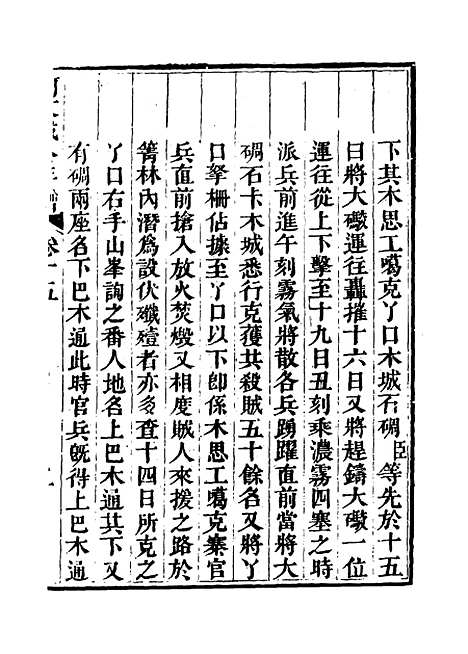 下其木思工噶克丫口木城石碉臣等先於十五
日將大礮運往轟摧十六日又將趕鑄大礮一位
運往從上下擊至十九日丑刻乘濃霧四塞之時
派兵前進午刻霧氣將散各兵踴躍直前當將大
碉石卡木城悉行克獲共殺賊五十餘名又將丫
口拏柵佔據至丫口以下卽係木思工噶克寨官
兵直前搶入放火焚燬又相度賊人來援之路於
箐林內潛爲設伏殲殪者亦多查十四日所克之
丫口右手山峯詢之番人地名上巴木通其下又
有碉兩座名下巴木通此時官兵旣得上巴木通
卷十五